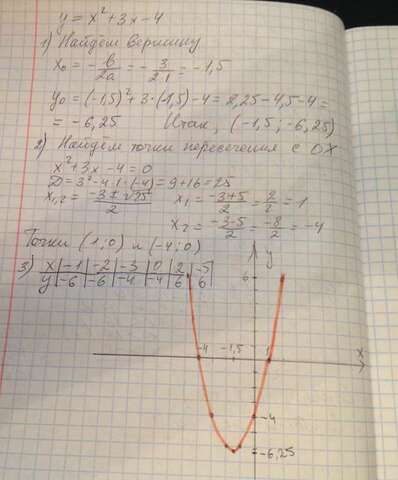 y = x² + 3x - 4
1) Найдем вершину
x₀ = -b/2a = -3/2·1 = -1,5
y₀ = (-1,5)² + 3·(-1,5) - 4 = 2,25 - 4,5 - 4 =
= -6,25 Итак, (-1,5; -6,25)
2) Найдем точки пересечения с OX
x² + 3x - 4 = 0
D = 3² - 4·1·(-4) = 9 + 16 = 25
x₁,₂ = -3 ± √25/2 x₁ = -3+5/2 = 2/2 = 1
x₂ = -3-5/2 = -8/2 = -4
Точки (1; 0) и (-4; 0)
3) x | -1 | -2 | -3 | 0 | 2 | -5
y | -6 | -6 | -4 | -4 | 6 | 6
y
6
-4 -1,5 1 x
-4
-6,25